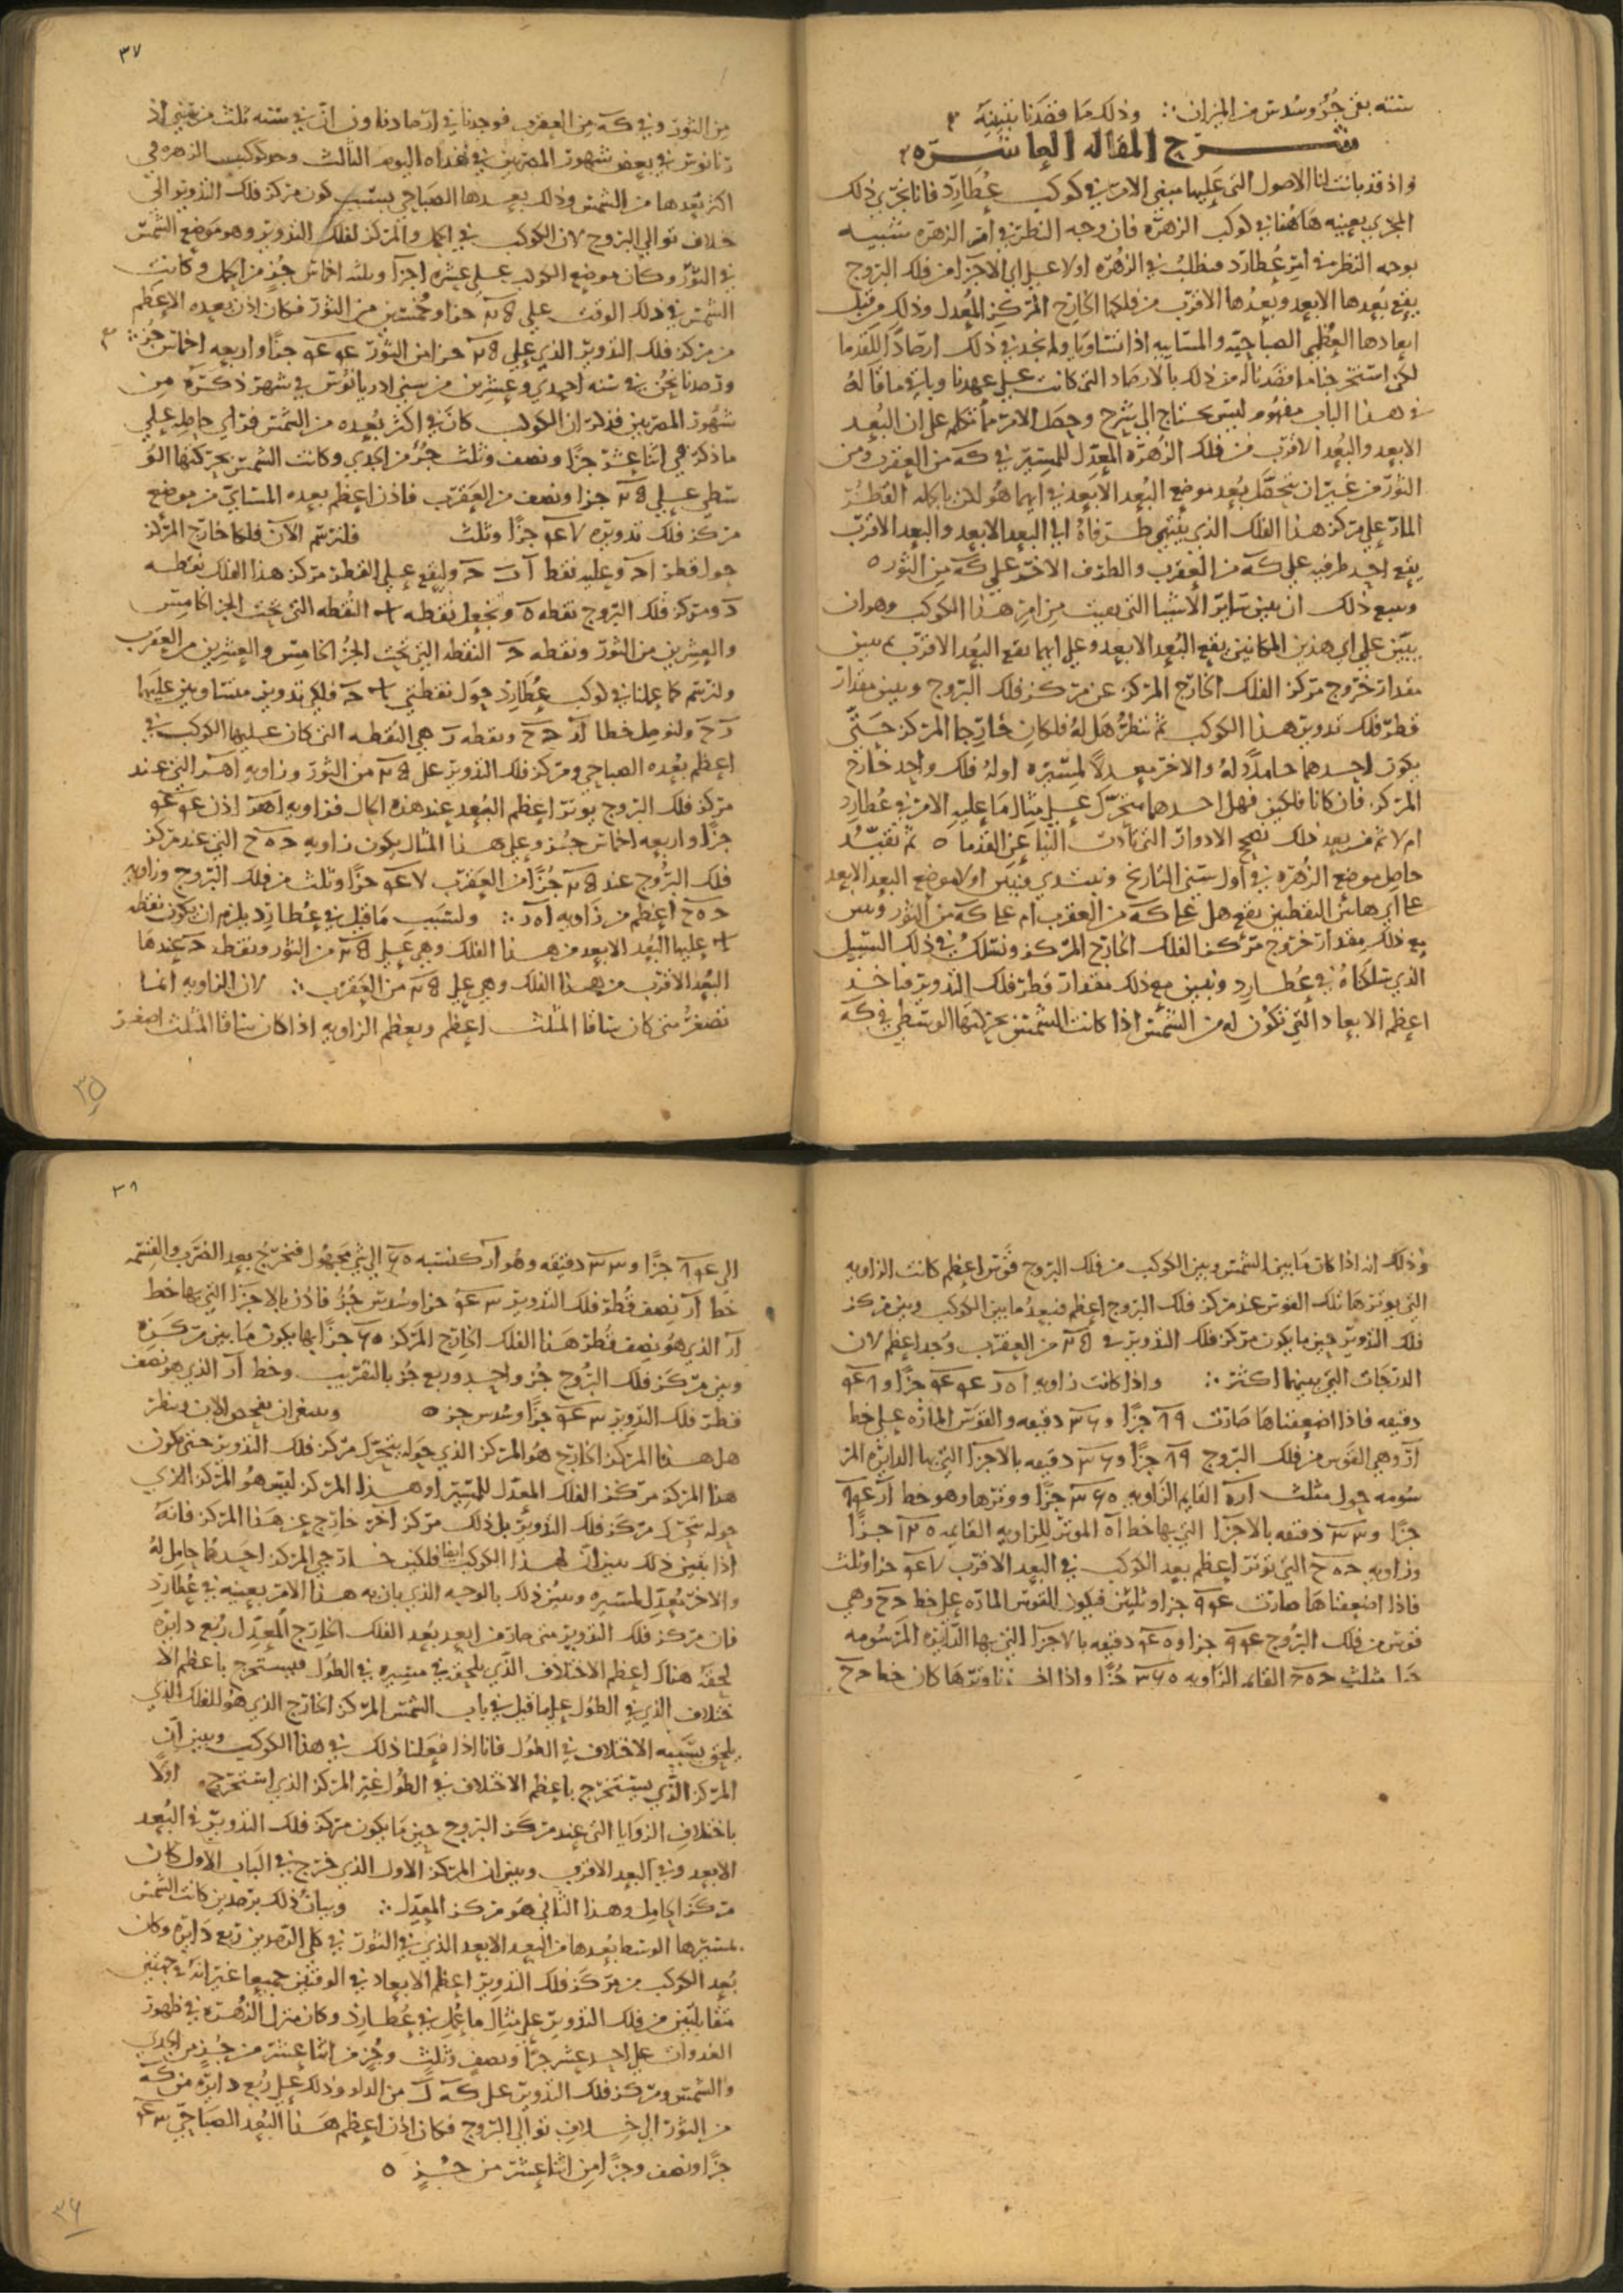 سنته بقى جزؤ وسدس من الميزان ∴ وذلك ما قصدنا تبينه
شرح المقاله العاشره
واذ قد بانت لنا الاصول التى عليها مبنى الامر فى كوكب عطارد فانا نجرى ذلك
المجرى بعينه هاهنا فى كوكب الزهره فان وجه النظر فى امر الزهره شبيه
بوجه النظر فى امر عطارد فنطلب فى الزهره اولا على اى الاجزا من فلك البروج
يقع بعدها الابعد وبعدها الاقرب من فلكها الخارج المركز المعدل وذلك من قبل
ابعادها العظمى الصباحيه والمسايه اذا تساويا ولم نجد فى ذلك ارصادا للقدما
لكن استخرجنا ما قصدنا له من ذلك بالارصاد التى كانت على عهدنا وباقى ما قاله
فى هذا الباب مفهوم ليس يحتاج الى شرح وجعل الامر ما تكلم على ان البعد
الابعد والبعد الاقرب من فلك الزهره المعدل للمسير فى كه من العقرب ومن
الثور من غير ان يتحصل بعد موضع البعد الابعد فى ايهما هو لكن بالجمله القطر
المار على مركز هذا الفلك الذى ينتهى طرفاه الى البعد الابعد والبعد الاقرب
يقع احد طرفيه على كه من العقرب والطرف الاخر على كه من الثور ه
ويتبع ذلك ان يبين ساير الاشيا التى بقيت من امر هذا الكوكب وهو ان
يبين على اى هذين المكانين يقع البعد الابعد وعلى ايهما يقع البعد الاقرب ثم يبين
مقدار خروج مركز الفلك الخارج المركز عن مركز فلك البروج ويبين مقدار
قطر فلك تدوير هذا الكوكب ثم ننظر هل له فلكان خارجا المركز حتى
يكون احدهما حاملا له والاخر معدلا لمسيره او له فلك واحد خارج
المركز فان كانا فلكين فهل احدهما متحرك على مثال ما عليه الامر فى عطارد
ام لا ثم من بعد ذلك نصحح الادوار التى تادت الينا عن القدما ه ثم نقيد
حاصل موضع الزهره فى اول سنى التاريخ ونبتدى فنبين اولا موضع البعد الابعد
على اى هاتين النقطتين يقع هل على كه من العقرب ام على كه من الثور ونبين
مع ذلك مقدار خروج مركز الفلك الخارج المركز ونسلك فى ذلك السبيل
الذى سلكناه فى عطارد ونبين مع ذلك مقدار قطر فلك التدوير فناخذ
اعظم الابعاد التى تكون له من الشمس اذا كانت الشمس بحركتها الوسطى فى كه
٣٧
من الثور وفى كه من العقرب فوجدنا فى ارصاد ثاون ان فى سنه ثلث من سنى اذ
ريانوس فى بعض شهور المصريين فى غداه اليوم الثالث وجد كوكب الزهره فى
اكثر بعدها من الشمس وذلك بعدها الصباحى بسبب كون مركز فلك التدوير الى
خلاف توالى البروج لان الكوكب فى الحمل والمركز لفلك التدوير وهو موضع الشمس
فى الثور وكان موضع الكوكب على عشره اجزا وثلثه اخماس جزؤ من الحمل وكانت
الشمس فى ذلك الوقت على جزا وخمسين من الثور فكان اذن بعده الاعظم
من مركز فلك التدوير الذى على جزا من الثور جزا واربعه اخماس جزؤ ∴
ورصدنا نحن فى سنه احدى وعشرين من سنى ادريانوس فى شهر ذكره من
شهور المصريين فذكر ان الكوكب كان فى اكثر بعده من الشمس فراى حاصله على
ما ذكر فى اثنا عشر جزا ونصف وثلث جزؤ من الجدى وكانت الشمس بحركتها الو
سطى على جزا ونصف من العقرب فاذن اعظم بعده المسايى من موضع
مركز فلك تدويره جزا وثلث فلنرسم الان فلكا خارج المركز
حول قطر ا ج وعليه نقط ا ب ج وليقع على القطر مركز هذا الفلك نقطه
د ومركز فلك البروج نقطه ه ونجعل نقطه ا النقطه التى تحت الجز الخامس
والعشرين من الثور ونقطه ج النقطه التى تحت الجز الخامس والعشرين من العقرب
ولنرسم كما علمنا فى كوكب عطارد حول نقطتى ا ج فلكى تدوير متساويين عليهما
ز ح ولنوصل خطا ا ز ج ح ونقطه ز هى النقطه التى كان عليها الكوكب فى
اعظم بعده الصباحى ومركز فلك التدوير على من الثور وزاويه ا ه ز التى عند
مركز فلك البروج يوتر اعظم البعد عند هذه الحال فزاويه ا ه ز اذن
جزا واربعه اخماس جزؤ وعلى هذا المثال يكون زاويه ج ه ح التى عند مركز
فلك البروج عند جزا من العقرب جزا وثلث من فلك البروج وزاويه
ج ه ح اعظم من زاويه ا ه ز ∴ ولسبب ما قيل فى عطارد يلزم ان يكون نقطه
ا عليها البعد الابعد من هذا الفلك وهى على من الثور ونقطه ج عندها
البعد الاقرب من هذا الفلك وهى على من العقرب ∴ لان الزاويه انما
تصغر متى كان ساقا المثلث اعظم ويعظم الزاويه اذا كان ساقا المثلث اصغر
٣٥
وذلك انه اذا كان ما بين الشمس وبين الكوكب من فلك البروج قوس اعظم كانت الزاويه
التى يوترها تلك القوس عند مركز فلك البروج اعظم فبعد ما بين الكوكب وبين مركز
فلك التدوير حين ما يكون مركز فلك التدوير فى من العقرب وجد اعظم لان
الدرجات التى بينهما اكثر ∴ واذا كانت زاويه ا ه ز جزا و
دقيقه فاذا اضعفناها صارت جزا و دقيقه والقوس الماره على خط
ا ز وهى القوس من فلك البروج جزا و دقيقه بالاجزا التى بها الدايره المر
سومه حول مثلث ا ز ه القايم الزاويه جزا ووترها وهو خط ا ز
جزا و دقيقه بالاجزا التى بها خط ا ه الموتر للزاويه القايمه جزا
وزاويه ج ه ح التى توتر اعظم بعد الكوكب فى البعد الاقرب جزا وثلث
فاذا اضعفناها صارت جزا وثلثين فيكون القوس الماره على خط ج ح وهى
قوس من فلك البروج جزا و دقيقه بالاجزا التى بها الدايره المرسومه
على مثلث ج ه ح القايم الزاويه جزا واذا اخذنا وترها كان خط ج ح
٣٨
الى جزا و دقيقه وهو ا ز كنسبه الى شى مجهول فنخرج بعد الضرب والقسمه
خط ا ز نصف قطر فلك التدوير جزا وسدس جزؤ فاذن بالاجزا التى بها خط
ا د الذى هو نصف قطر هذا الفلك الخارج المركز جزا بها يكون ما بين مركزه
وبين مركز فلك البروج جزؤ واحد وربع جزؤ بالتقريب وخط ا ز الذى هو نصف
قطر فلك التدوير جزا وسدس جز ه وينبغى ان نفحص الان وننظر
هل هذا المركز الخارج هو المركز الذى حوله يتحرك مركز فلك التدوير حتى يكون
هذا المركز مركز الفلك المعدل للمسير او هذا المركز ليس هو المركز الذى
حوله يتحرك مركز فلك التدوير بل ذلك مركز اخر خارج عن هذا المركز فانه
اذا تبين ذلك تبين ان لهذا الكوكب ايضا فلكين خارجى المركز احدهما حامل له
والاخر معدل لمسيره وتبين ذلك بالوجه الذى بان به هذا الامر بعينه فى عطارد
فان مركز فلك التدوير متى صار من ابعد بعد الفلك الخارج المعدل ربع دايره
لحقه هناك اعظم الاختلاف الذى يلحق فى مسيره فى الطول فيستخرج باعظم الا
ختلاف الذى فى الطول على ما قيل فى باب الشمس المركز الخارج الذى هو للفلك الذى
يلحق بسببه الاختلاف فى الطول فانا اذا فعلنا ذلك فى هذا الكوكب وتبين ان
المركز الذى يستخرج باعظم الاختلاف فى الطول غير المركز الذى استخرج اولا
باختلاف الزوايا التى عند مركز البروج حين ما يكون مركز فلك التدوير فى البعد
الابعد وفى البعد الاقرب وتبين ان المركز الاول الذى خرج فى الباب الاول كان
مركز الحامل وهذا الثانى هو مركز المعدل ∴ وبيان ذلك برصدين كانت الشمس
بمسيرها الوسط بعدها من البعد الابعد الذى فى الثور فى كلى الرصدين ربع دايره وكان
بعد الكوكب من مركز فلك التدوير اعظم الابعاد فى الوقتين جميعا غير انه فى جهتين
متقابلتين من فلك التدوير على مثال ما عمل فى عطارد وكان منزل الزهره فى ظهور
الغدوات على احد عشر جزا ونصف وثلث وجز من اثنا عشر من جزؤ من الجدى
والشمس ومركز فلك التدوير على كه ل من الدلو وذلك على ربع دايره من كه
من الثور الى خلاف توالى البروج فكان اذن اعظم هذا البعد الصباحى
جزا ونصف وجزا من اثنا عشر من جزؤ ه
٣٦